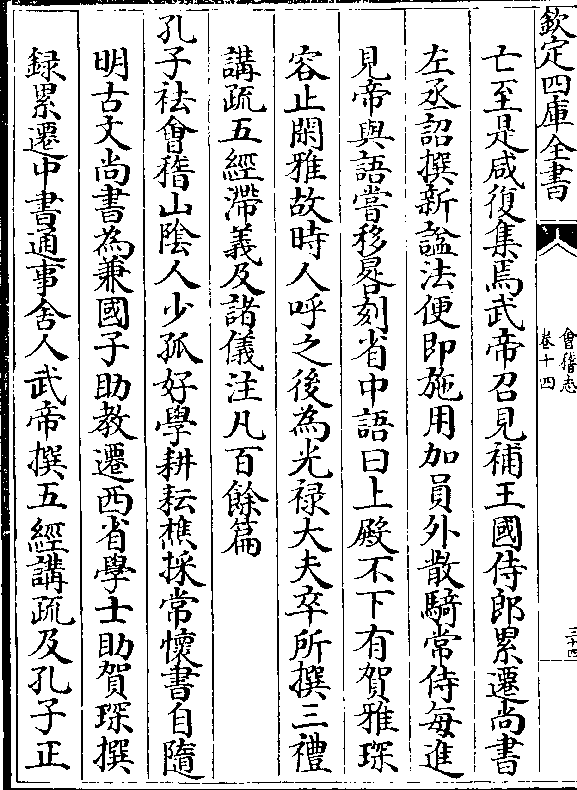 欽定四庫全書
會稽志
卷十四
三十四
亡至是咸復集焉武帝召見補王國侍郎累遷尚書
左丞詔撰新諡法便即施用加員外散騎常侍每進
見帝與語嘗移晷刻省中語曰上殿不下有賀雅琛
容止閑雅故時人呼之後為光禄大夫卒所撰三禮
講疏五經滯義及諸儀注凡百餘篇
孔子袪會稽山陰人少孤好學耕耘樵採常懷書自隨
明古文尚書為兼國子助教遷西省學士助賀琛撰
録累遷中書通事舍人武帝撰五經講疏及孔子正